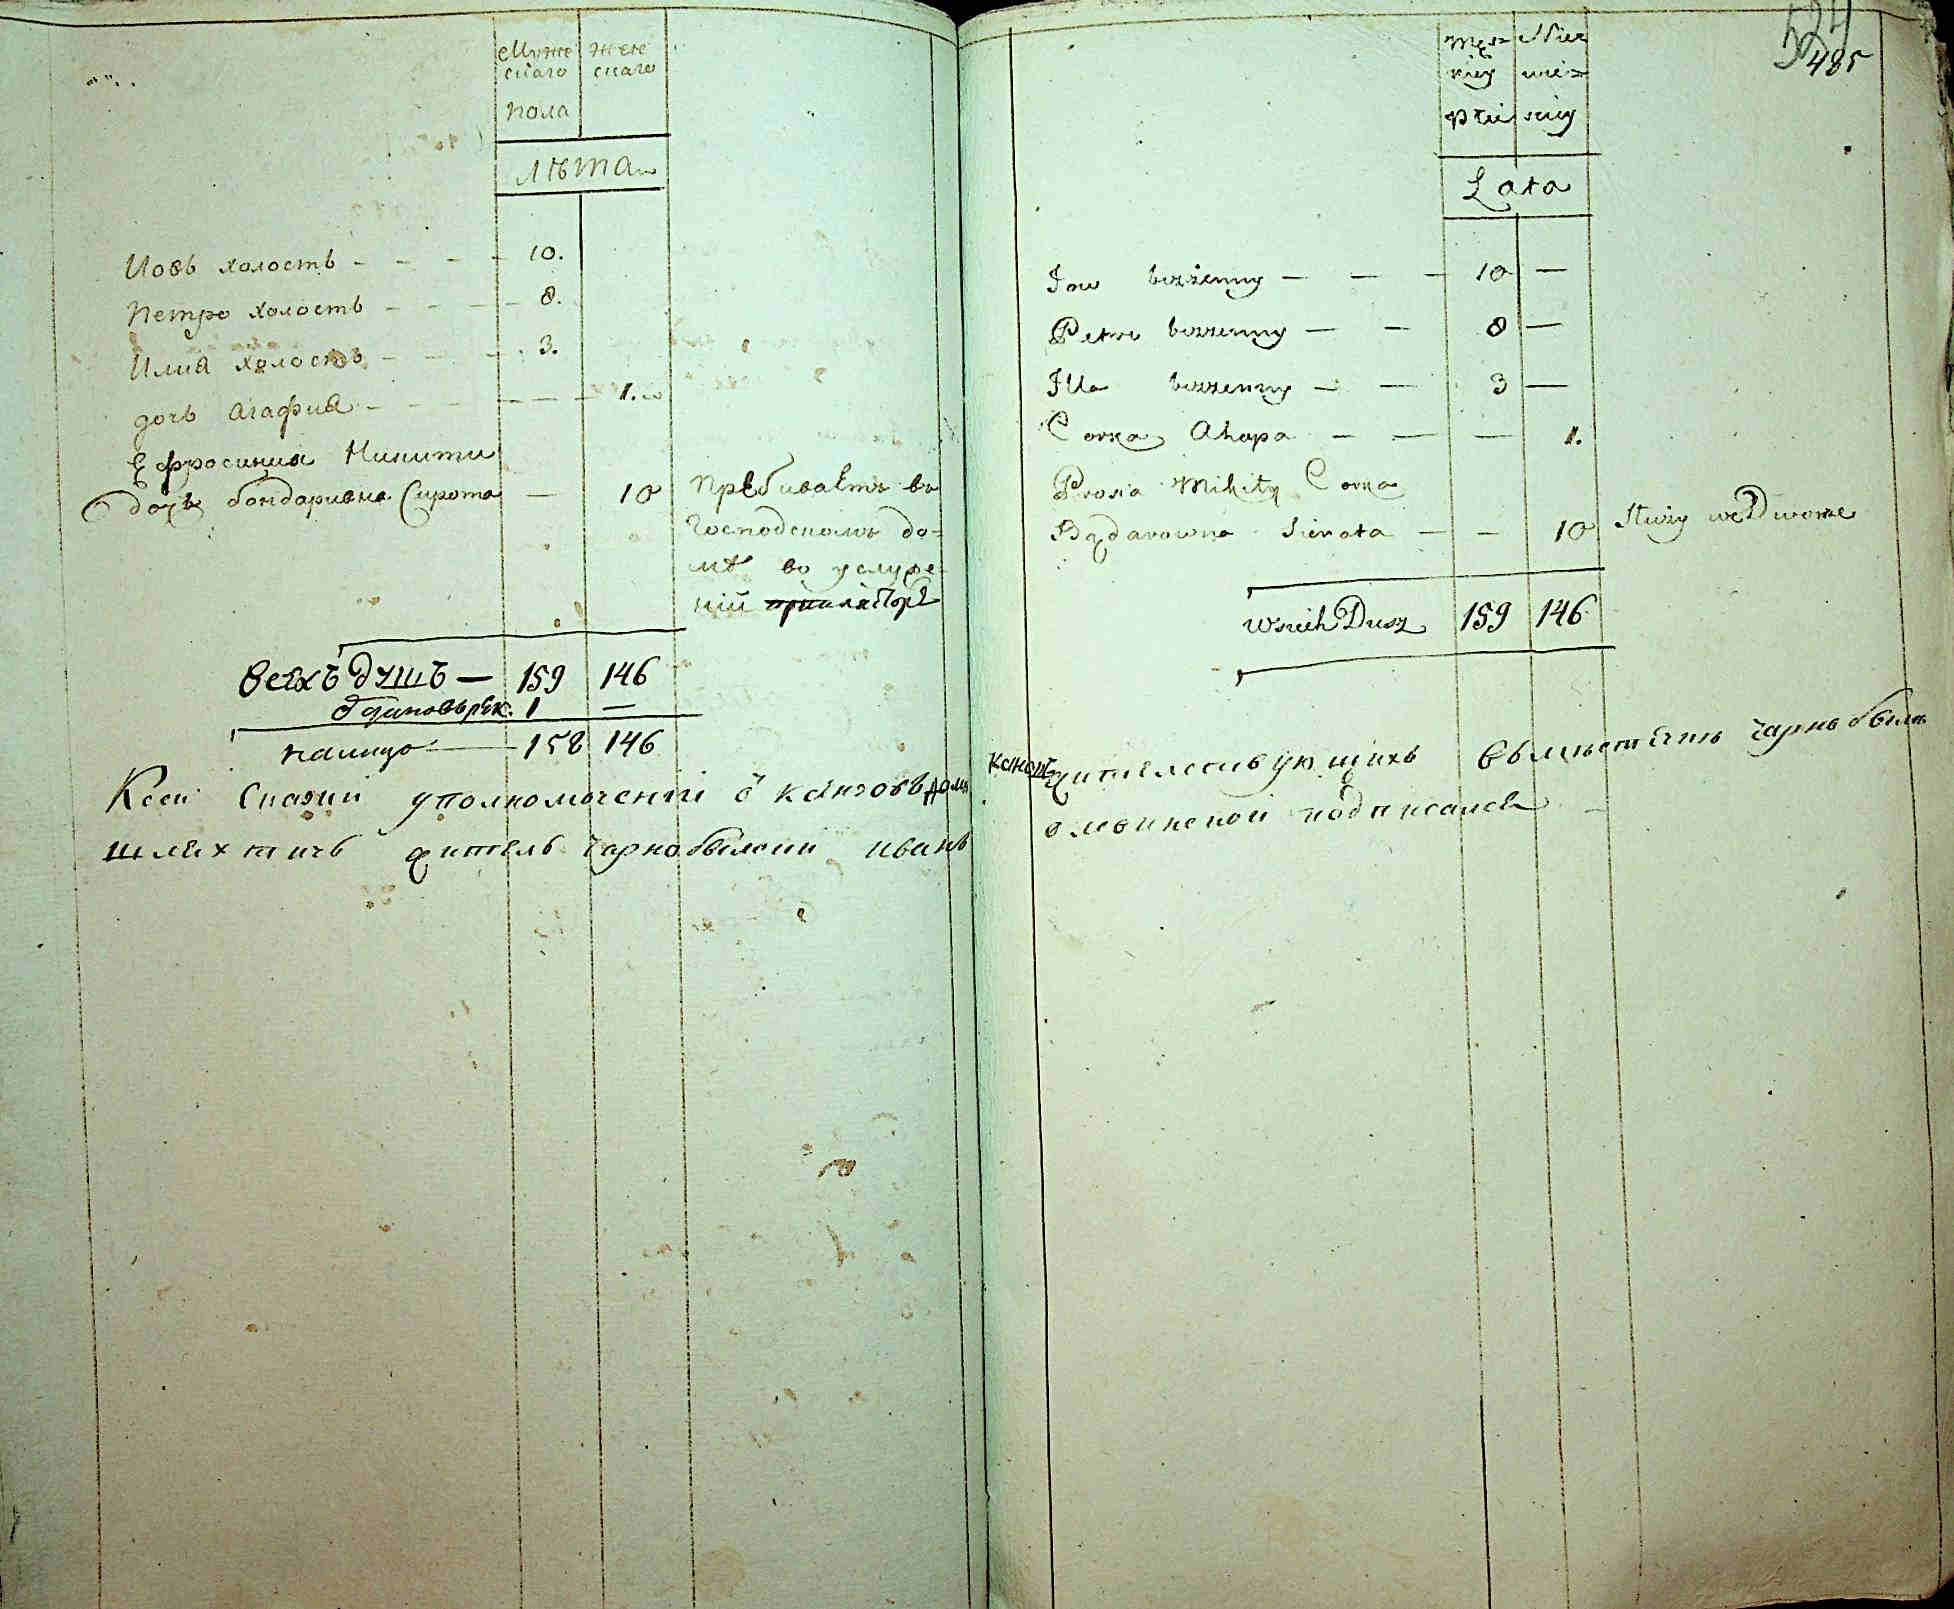 Муже Жене
скаго скаго
пола
Лѣта
Иовъ холость - - - - 10.
Петро холость - - - 8.
Илия холость - - - 3.
дочь Агафия - - - - - - 1.
Ефросиния Никити
дочь бондаривна Сирота — 10
Пребиваетъ въ
Господскомъ до-
мѣ во услуже-
ній
Всехъ душъ — 159 146
1 —
налицо — 158 146
Ксей Сказкы уполномочений
шлехтичъ житель Чарнобылский иванъ
524
485
Męz Nie
kiey wie
Płci skiey
Lata
Jow bezżenny — — — 10 —
Petro bezzenny — — 8 —
Illa bezzenny — — 3 —
Corka Ahapa — — — 1.
Prosia Mikity Corka
Bądarowna Sierota — — 10 Służy we Dworze
wsich Dusz 159 146
жителствующихъ Вьместечкъ Чарнобыли
подписался